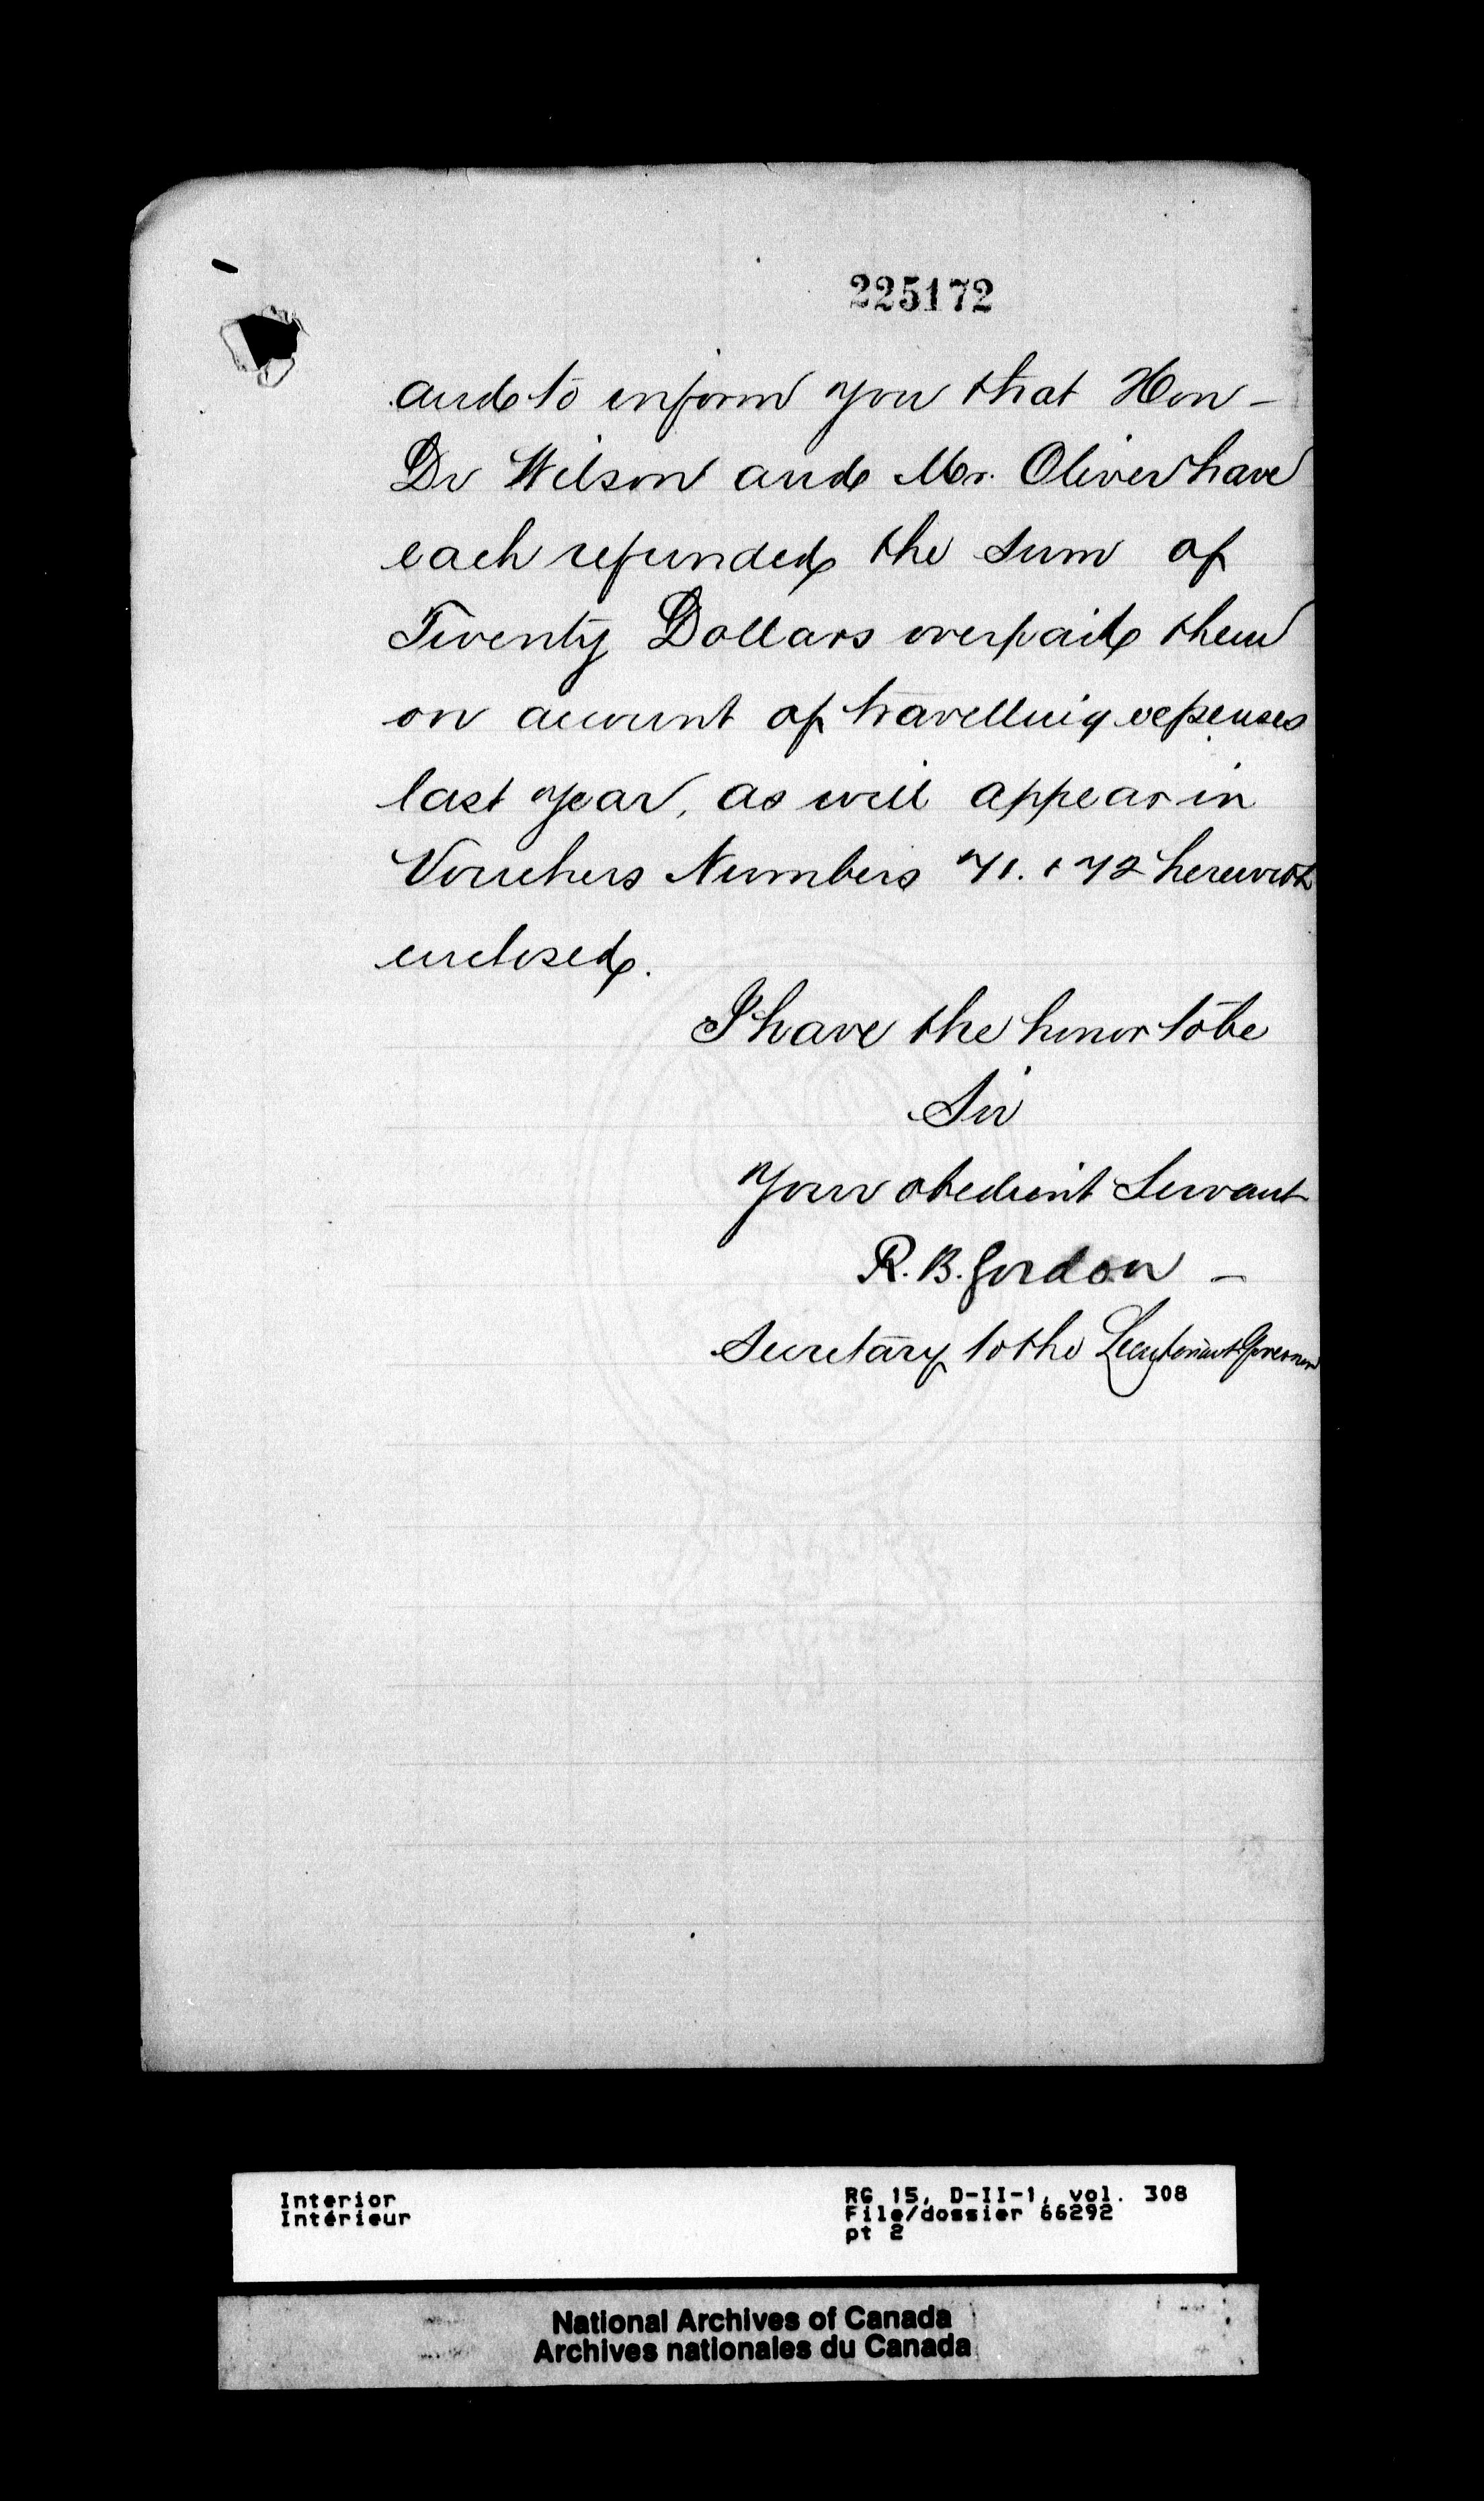 225172
and to inform you that Hon -
Dr Wilson and Mr. Oliver have
each refunded the sum of
Twenty Dollars overpaid them
on account of travelling expenses
last year, as will appear in
Vouchers Numbers 71. & 72 herewith
enclosed.
I have the honor to be
Sir
Your obedient Servant
R. B. Gordon -
Secretary to the Lieutenant Governor
Interior
Intérieur
RG 15, D-II-1, vol. 308
File/dossier 66292
pt 2
National Archives of Canada
Archives nationales du Canada